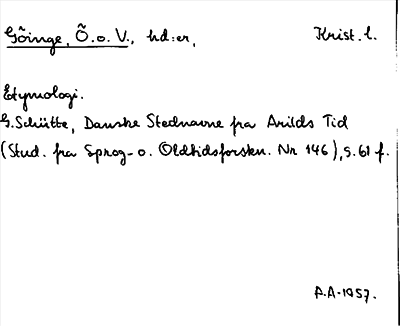 Göinge, Ö. o. V., hd:er, Krist. l.
Etymologi.
G. Schütte, Danske Stednavne fra Arilds Tid
(Stud. fra Sprog- o. Oldtidsforskn. Nr 146), s. 61 f.
A.A-1957.